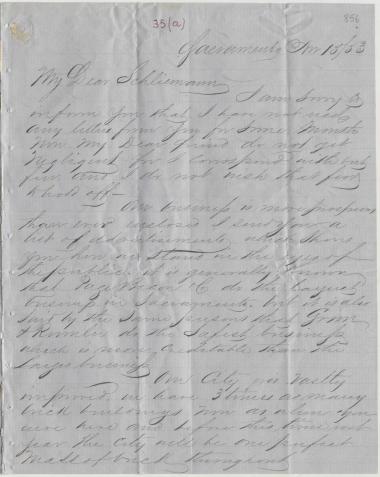 35(a)
856
Sacramento Nov 15/53
My Dear Schliemann
I am sorry to
inform you that I have not recd
any letter from you for some months
Now My Dear friend do not get
Negligent for I correspond with but
few and I do not wish that few
to hold off—
Our business is more prosperous
than ever enclosed I send you a
list of advertisements which shows
you how we stand in the eyes of
the public it is generally known
that Page Bacon & Co do the largest
business in Sacramento but it is also
said by the same persons that Grim
& Rumler do the safest business
which is more creditable than the
large business
Our City is vastly
improved we have 3 times as many
brick buildings now as when you
were here and before this time next
year the City will be one perfect
Mass of brick throughout